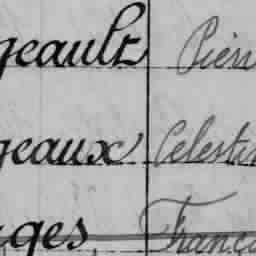 geault Pierr
geaux Celestin
ges Franço